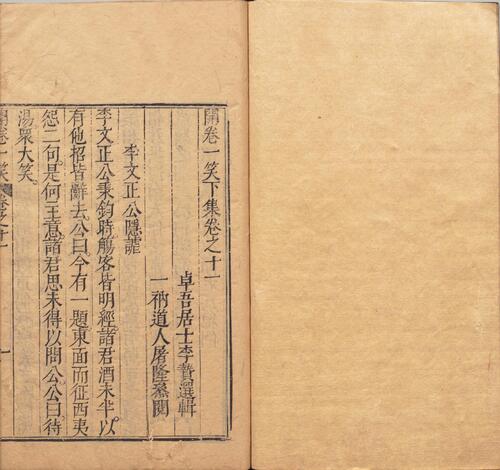 開卷一笑下集卷之十一
卓吾居士李贄選輯
一衲道人屠隆叅閱
李文正公隱謔
李文正公秉鈞時觴客皆明經諸君酒未半以
有他招皆辭去公曰今有一題東面而征西夷
怨二句是何主意諸君思未得以問公公曰待
湯衆大笑
開卷一笑 卷之十一 一